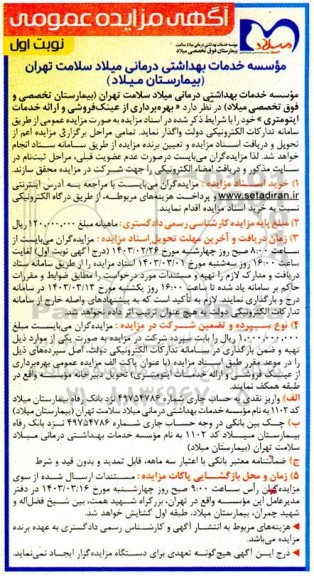 آگهی مزایده عمومی
نوبت اول
میلاد
مؤسسه خدمات بهداشتی درمانی میلاد سلامت تهران
بیمارستان فوق تخصصی میلاد
مؤسسه خدمات بهداشتی درمانی میلاد سلامت تهران
(بیمارستان میلاد)
مؤسسه خدمات بهداشتی درمانی میلاد سلامت تهران (بیمارستان تخصصی و
فوق تخصصی میلاد) در نظر دارد « بهره‌برداری از عینک‌فروشی و ارائه خدمات
اپتومتری » خود را با شرایط ذکر شده در اسناد مزایده به صورت مزایده عمومی از طریق
سامانه تدارکات الکترونیکی دولت واگذار نماید. تمامی مراحل برگزاری مزایده اعم از
تحویل و دریافت اسناد مزایده و تعیین برنده مزایده از طریق سامانه ستاد انجام
خواهد شد. لذا مزایده‌گران می‌بایست درصورت عدم عضویت قبلی، مراحل ثبت‌نام در
سایت مذکور و دریافت امضاء الکترونیکی را جهت شرکت در مزایده محقق سازند.
۱) خرید اسناد مزایده : مزایده‌گران می‌بایست با مراجعه به آدرس اینترنتی
www.setadiran.ir و پرداخت هزینه‌های مربوطه، از طریق درگاه الکترونیکی
نسبت به خرید اسناد مزایده اقدام نمایند.
۲) مبلغ پایه مزایده کارشناسی رسمی دادگستری: ماهیانه مبلغ ۱,۲۰۰,۰۰۰,۰۰۰ ریال
۳) زمان دریافت و آخرین مهلت تحویل اسناد مزایده : مزایده‌گران می‌بایست از
ساعت ۸:۰۰ صبح روز چهارشنبه مورخ ۱۴۰۳/۰۲/۲۶ (درج آگهی نوبت اول) لغایت
ساعت ۱۶:۰۰ روز سه‌شنبه مورخ ۱۴۰۳/۰۳/۰۱ اسناد مزایده را از طریق سامانه ستاد
دریافت و مدارک لازم را تهیه و مستندات مورد درخواست را مطابق ضوابط و مقررات
حاکم بر سامانه یاد شده تا ساعت ۱۶:۰۰ روز یکشنبه مورخ ۱۴۰۳/۰۳/۱۳ در سامانه
درج و بارگذاری نمایند. لازم به تأکید است که به پیشنهادهای واصله خارج از سامانه
تدارکات الکترونیکی دولت به هیچ عنوان ترتیب اثر داده نخواهد شد.
۴) نوع سپرده و تضمین شرکت در مزایده : مزایده‌گران می‌بایست مبلغ
۱۰,۰۰۰,۰۰۰,۰۰۰ ریال را بابت سپرده شرکت در مزایده به صورت یکی از موارد ذیل
تهیه و ضمن بارگذاری در سامانه تدارکات الکترونیکی دولت، اصل سپرده‌های ذیل
را در موعد مقرر طبق اسناد مزایده (با عنوان پاکت الف مزایده عمومی بهره‌برداری
از عینک‌فروشی و ارائه خدمات اپتومتری) تحویل دبیرخانه مؤسسه واقع در
طبقه همکف نمایند.
الف) واریز نقدی به حساب جاری شماره ۴۹۷۵۴۷۸۶ نزد بانک رفاه بیمارستان میلاد
کد ۱۱۰۲ به نام مؤسسه خدمات بهداشتی درمانی میلاد سلامت تهران (بیمارستان میلاد)
ب) چک بین بانکی در وجه حساب جاری شماره ۴۹۷۵۴۷۸۶ نزد بانک رفاه
بیمارستان میلاد کد ۱۱۰۲ به نام مؤسسه خدمات بهداشتی درمانی میلاد
سلامت تهران (بیمارستان میلاد)
ج) ضمانتنامه معتبر بانکی با اعتبار سه ماهه، قابل تمدید و بدون قید و شرط
۵) زمان و محل بازگشایی پاکات مزایده : مستندات ارسال شده از سوی
مزایده‌گران رأس ساعت ۹:۰۰ صبح روز چهارشنبه مورخ ۱۴۰۳/۰۳/۱۶ در دفتر
مدیرعامل این مؤسسه واقع در تهران، بزرگراه شهید همت، بین شیخ فضل‌اله و
شهید چمران، بیمارستان میلاد، طبقه اول گشایش خواهد شد.
هزینه‌های مربوط به انتشار آگهی و کارشناس رسمی دادگستری به عهده برنده
مزایده می‌باشد.
درج این آگهی هیچ‌گونه تعهدی برای دستگاه مزایده‌گزار ایجاد نمی‌نماید.